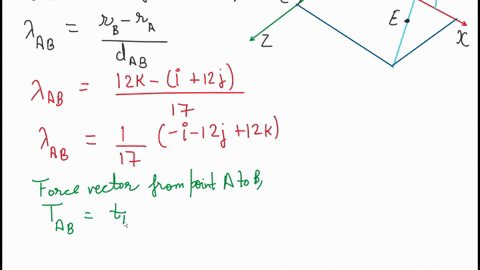 λ_AB = (r_B − r_A) / d_AB
λ_AB = (12k − (i + 12j)) / 17
λ_AB = 1/17 (−i − 12j + 12k)
Force vector from point A to B,
T_AB = t₁
Z
E
X